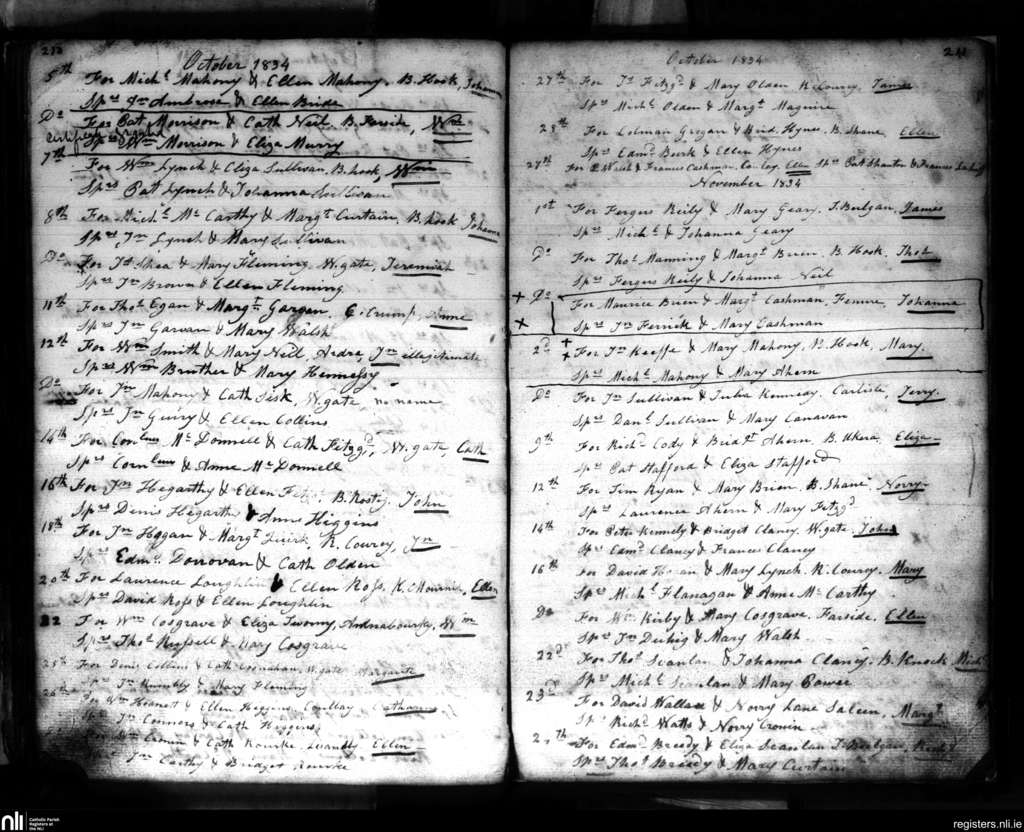 210
October 1834
5th For Michl Mahony & Ellen Mahony. B. Hook, Johanna
Sprs Jn Ambrose & Ellen Bride
Do For Pat Morrison & Cath Neil. B. Farside, Wm
Certificate
Sprs Wm Morrison & Eliza Murry
7th For Wm Lynch & Eliza Sullivan, B. hook, Wm
Sprs Pat Lynch & Johanna Sullivan
8th For Michl Mc Carthy & Margt Curtain, B. hook Johanna
Sprs Jn Lynch & Mary Sullivan
Do For Jas Shea & Mary Fleming W. gate, Jeremiah
Sprs Jn Brown & Ellen Fleming
11th For Thos Egan & Margt Garvan, C. Crump, Anne
Sprs Jn Garvan & Mary Walsh
12th For Wm Smith & Mary Neil, Aedra, Jn illegitimate
Sprs Wm Brother & Mary Hennessy
Do For Jn Mahony & Cath Sisk, W. gate, no name
Sprs Jn Geiry & Ellen Collins
14th For Corns Mc Donnell & Cath Fitzgd, W. gate Cath
Sprs Corns & Anne Mc Donnell
16th For Jn Hegarthy & Ellen B. Rosty, John
Sprs Denis Hegarth & Anne Higgins
18th For Jn Hogan & Margt Quirk, R. Courcy, Jn
Sprs Edmd Donovan & Cath Olden
20th For Laurence Loughlin & Ellen Ross, Ellen
Sprs David Ross & Ellen Loughlin
22 For Wm Cosgrave & Eliza Twomy, Wm
Sprs Thos Russell & Mary Cosgrave
25th For Denis Collins & Cath W. gate, Margarite
Sprs Jn & Mary Fleming
26th For Wm & Ellen Higgins, Catharine
Sprs Jn Connors & Cath Higgins
Cronin & Cath Rourke, Ellen
Jn Carthy & Bridget Rourke
211
October 1834
27th For Js Fitzgd & Mary Olden R. Courcy, James
Sprs Michl Olden & Margt Maguire
28th For Colman Grogan & Brid. Hynes, B. Shane, Ellen
Sprs Edmd Burk & Ellen Hynes
29th For P Walsh & Frances Cashman, Ellen Sprs Pat Stanton & Frances
November 1834
1st For Fergus Reily & Mary Geary, T. Bulgan, James
Sprs Michl & Johanna Geary
Do For Thos Manning & Margt Brien, B. Hook, Thos
Sprs Fergus Reily & Johanna Neil
+ Do For Maurice Brien & Margt Cashman, Fennor, Johanna
+ Sprs Jn Ferrick & Mary Cashman
2d + + For Jn Keeffe & Mary Mahony, B. Hook, Mary.
Sprs Michl Mahony & Mary Ahern
Do For Jn Sullivan & Julia Kennedy, Carlisle, Jerry.
Sprs Danl Sullivan & Mary Canavan
9th For Richd Cody & Bridgt Ahern, B. Ukera, Eliza
Sprs Pat Stafford & Eliza Stafford
12th For Tim Ryan & Mary Brien, B. Shane, Norry
Sprs Laurence Ahern & Mary Fitzgd
14th For Peter Kennely & Bridget Clancy, W. gate, John
Sprs Edmd Clancy & Frances Clancy
16th For David & Mary Lynch, R. Courcy, Mary
Sprs Michl Flanagan & Anne Mc Carthy
Do For Wm Kirby & Mary Cosgrave, Farside, Ellen
Sprs Jn & Mary Walsh
22d For Thos Scanlan & Johanna Clancy, B. Knock, Michl
Sprs Michl Scanlan & Mary Power
23d For David Wallace & Norry Lane, Saleen, Margt
Sprs Richd Watts & Norry Cronin
For Edmd Breedy & Eliza Scanlan T. Bulgan, Richd
Sprs Thos Breedy & Mary Curtain
nli Catholic Parish
Registers at
the NLI
registers.nli.ie